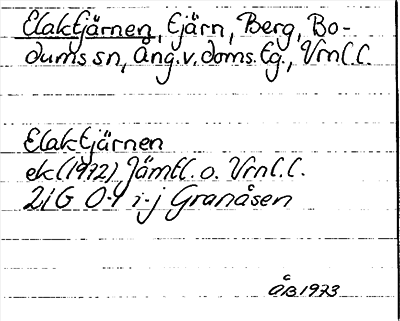 Elaktjärnen, tjärn, Berg, Bo-
dums sn, Ång.v.doms.tg., Vrnl.l.
Elaktjärnen
ek(1972) Jämtl. o. Vrnl.l.
21G 0-1 i-j Granåsen
ÅB1973